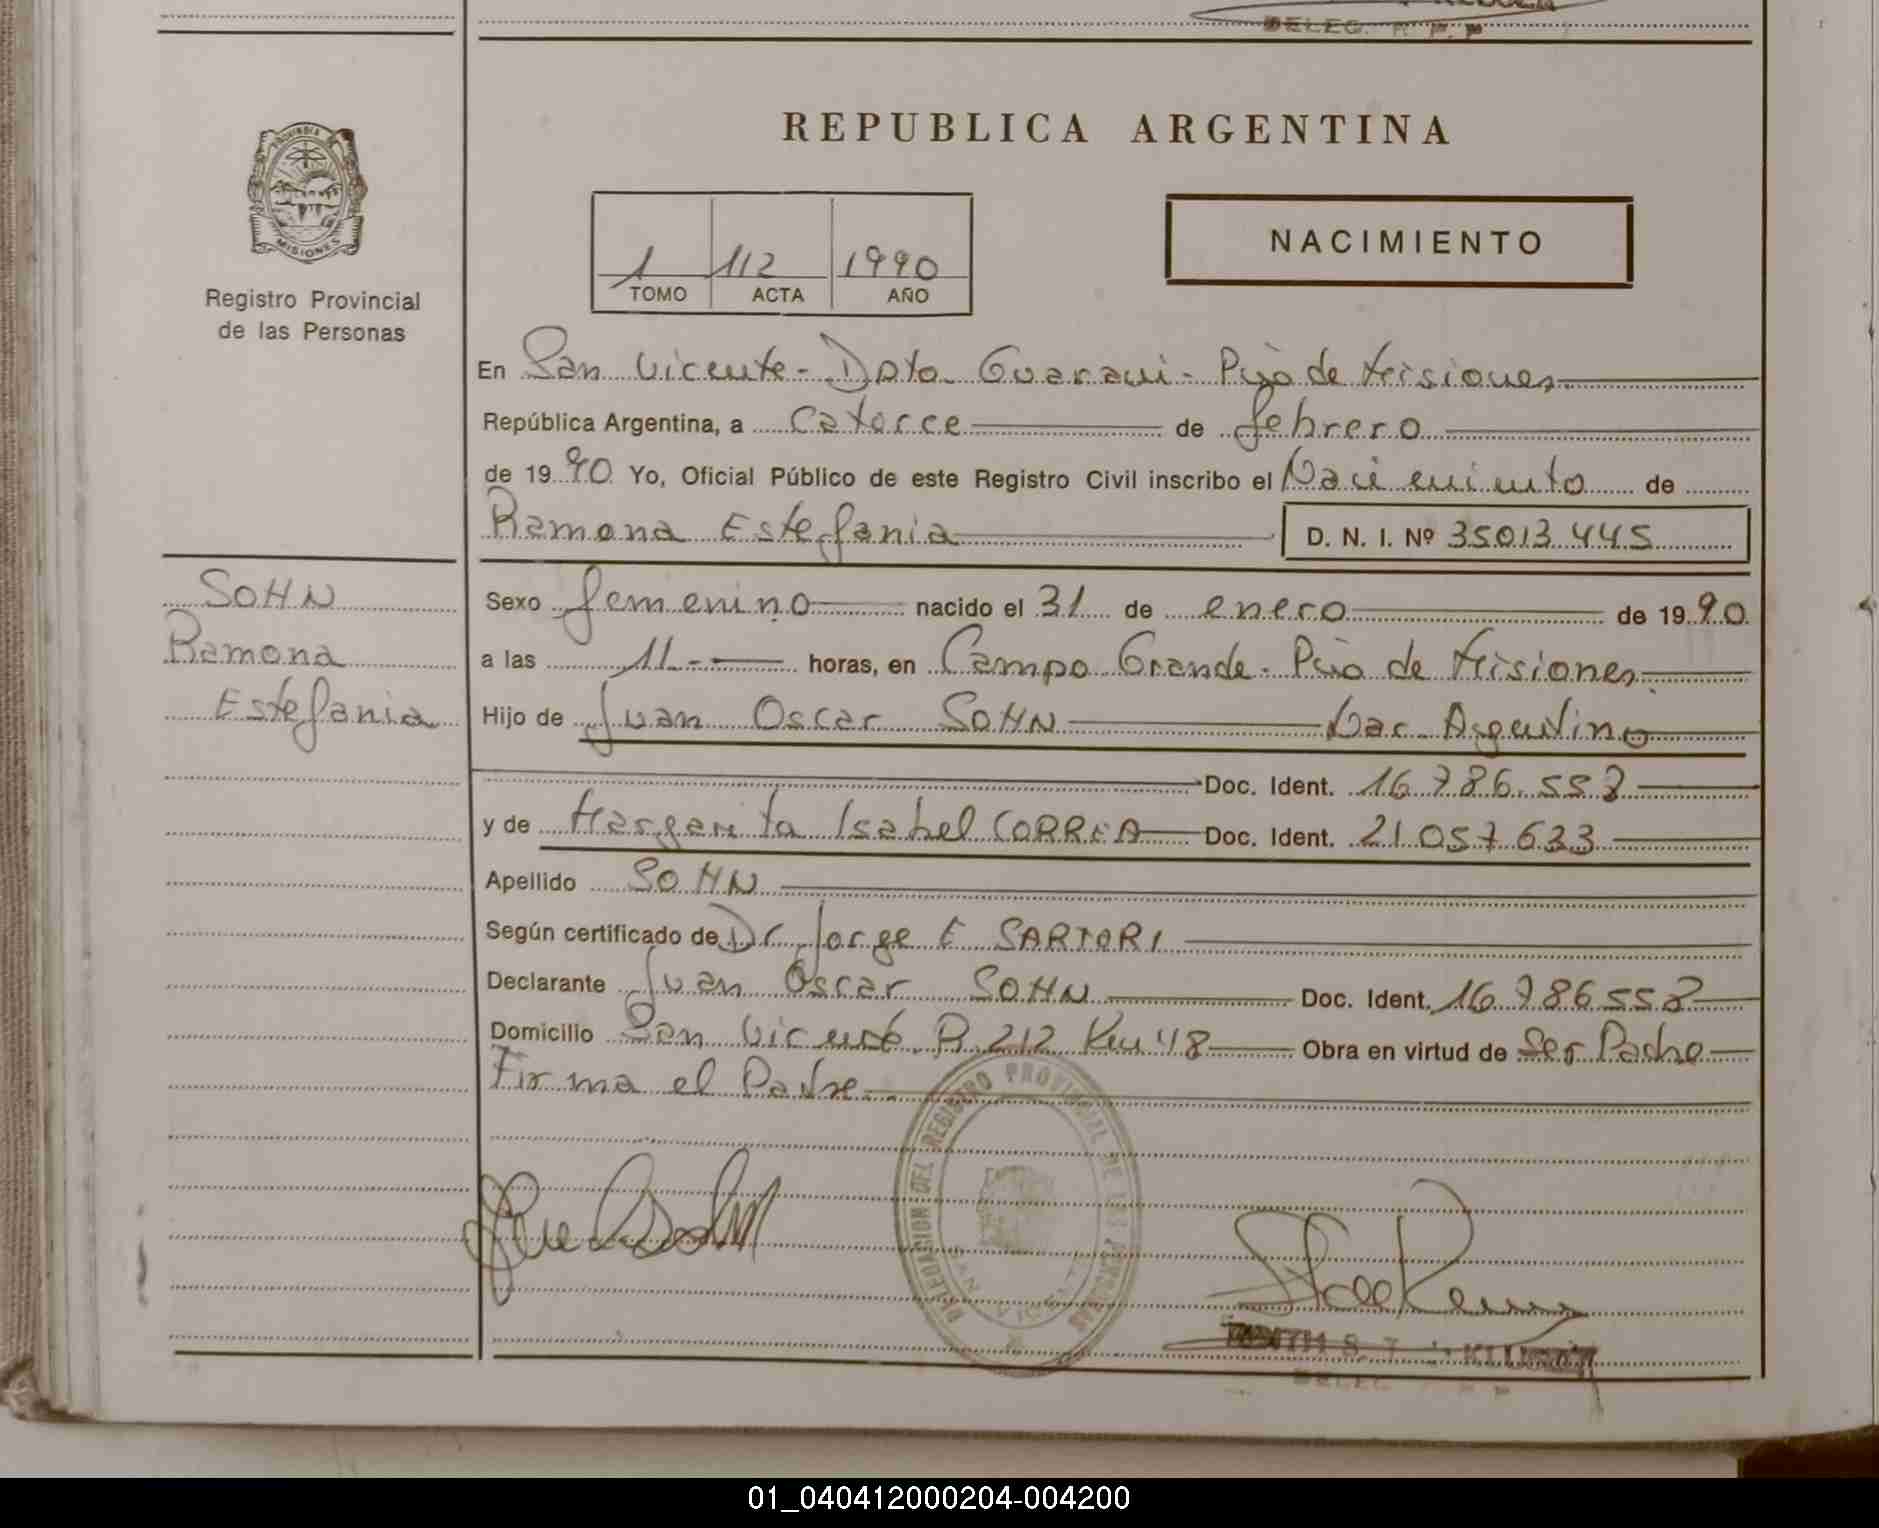 DELEG. R. P. P
REPUBLICA ARGENTINA
PROVINCIA DE
MISIONES
Registro Provincial
de las Personas
1 112 1990
TOMO ACTA AÑO
NACIMIENTO
En San Vicente - Dpto. Guarani - Pcia de Misiones
República Argentina, a catorce de febrero
de 1990 Yo, Oficial Público de este Registro Civil inscribo el Nacimiento de
Ramona Estefania D. N. I. Nº 35013445
SOHN
Ramona
Estefania
Sexo femenino nacido el 31 de enero de 1990
a las 11.- horas, en Campo Grande - Pcia de Misiones
Hijo de Juan Oscar SOHN Nac. Argentino
Doc. Ident. 16.786.558
y de Margarita Isabel CORREA Doc. Ident. 21.057.633
Apellido SOHN
Según certificado de Dr. Jorge E SARTORI
Declarante Juan Oscar SOHN Doc. Ident. 16.786.558
Domicilio San Vicente R. 212 Km 48 Obra en virtud de Ser Padre
Firma el Padre.
DELEGACION DEL REGISTRO PROVINCIAL DE LAS PERSONAS
SAN VICENTE
DELEG. R. P. P
01_040412000204-004200